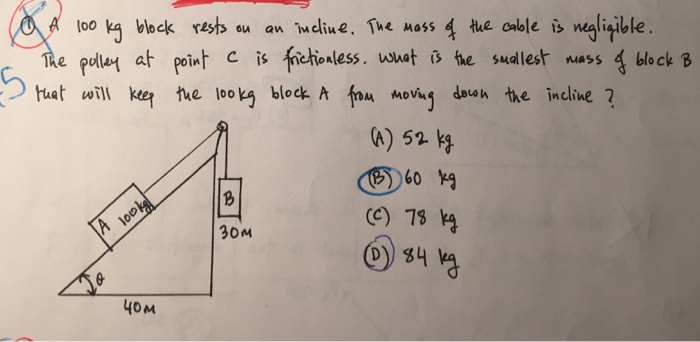 ① A 100 kg block rests on an incline. The mass of the cable is negligible.
The pulley at point C is frictionless. What is the smallest mass of block B
that will keep the 100kg block A from moving down the incline ?
(A) 52 kg
(B) 60 kg
(C) 78 kg
(D) 84 kg
A 100kg
B
30M
θ
40M